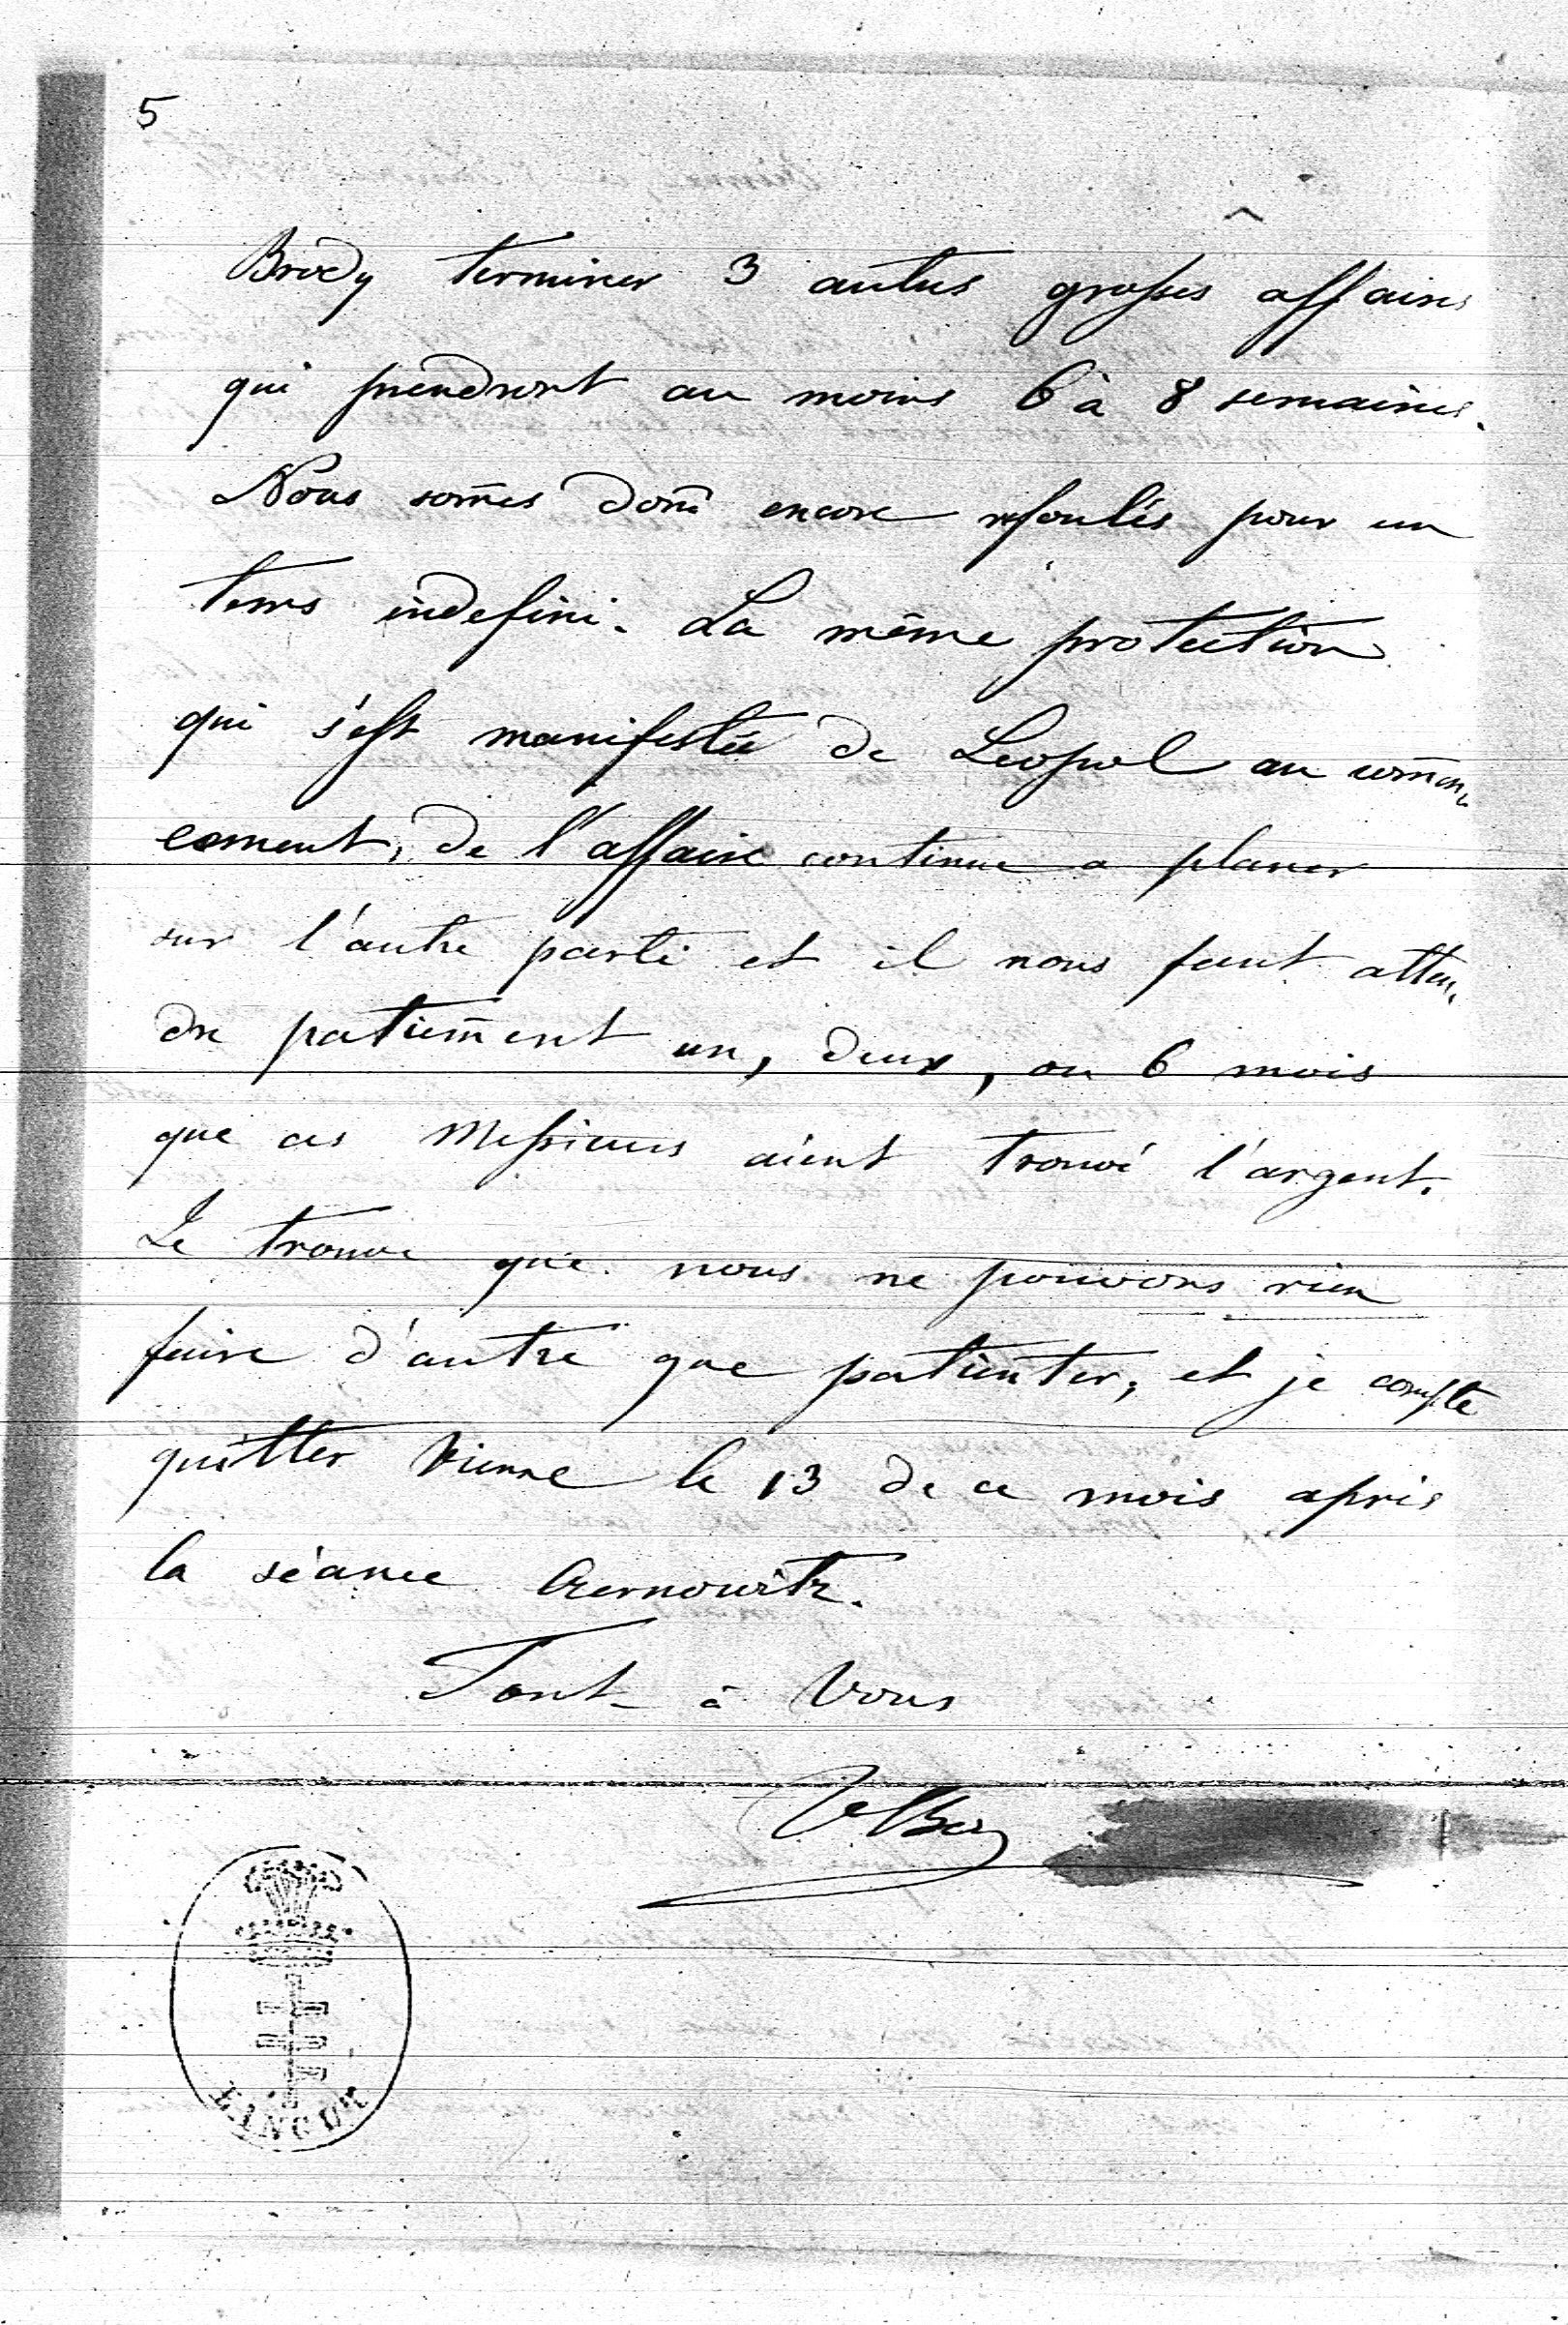 5
Brody terminer 3 autres grosses affaires
qui prendront au moins 6 à 8 semaines.
Nous som̄es donc encore refoulés pour un
tems indefini. La même protection
qui s'est manifestée de Leopol au com̄en-
cement, de l'affaire continue a planer
sur l'autre parti et il nous faut atten-
dre patiem̄ent un, deux, ou 6 mois
que ces Messieurs aient trouvé l'argent.
Je trouve que nous ne pouvons rien
faire d'autre que patienter, et je compte
quitter Vienne le 13 de ce mois après
la séance Czernowitz.
Tout à Vous